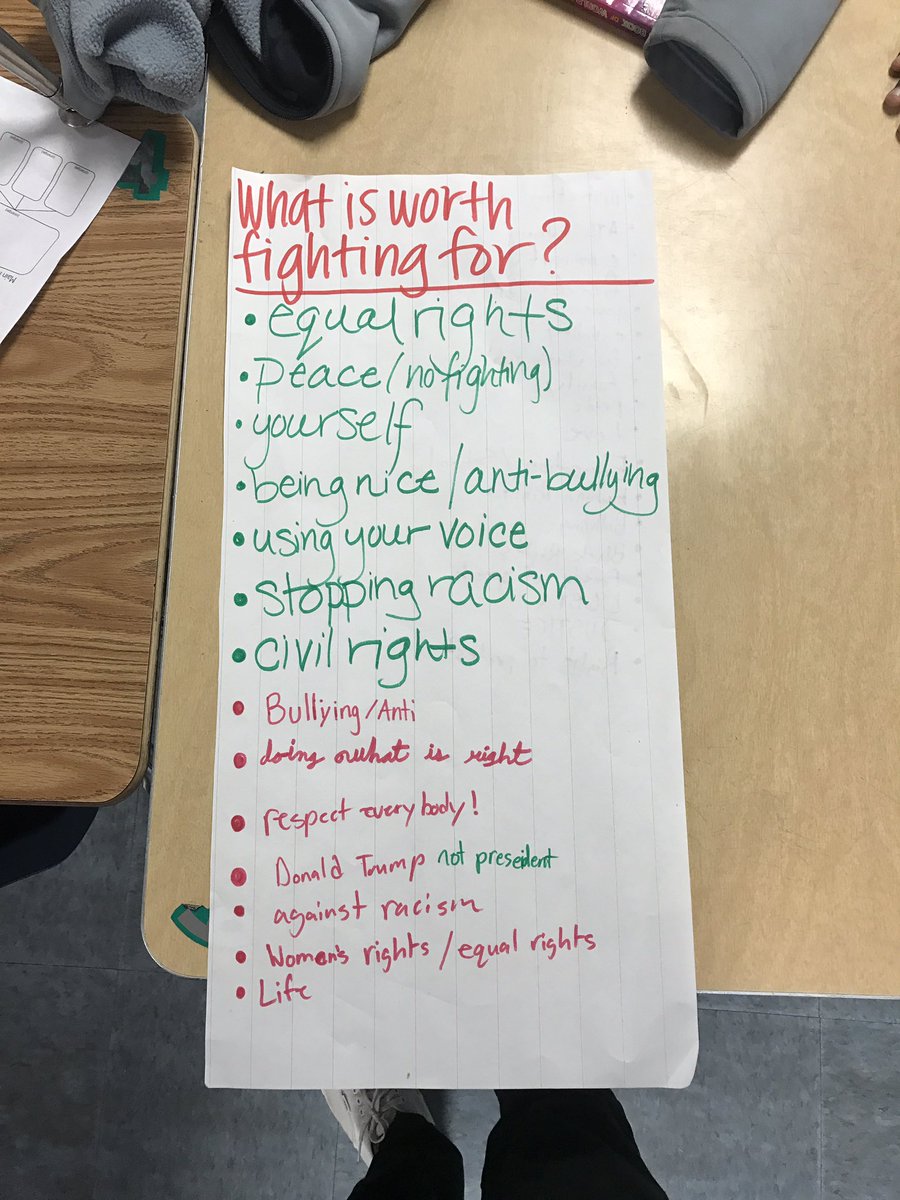 BOOK OF WORLD
Main
What is worth
fighting for?
• equal rights
• peace (no fighting)
• yourself
• being nice / anti-bullying
• using your voice
• stopping racism
• civil rights
• Bulliying/Anti
• doing what is right
• respect everybody!
• Donald Trump not preseident
• against racism
• Women's rights / equal rights
• Life